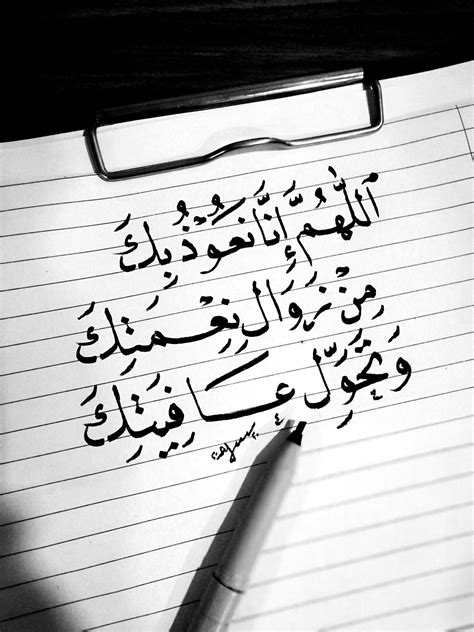 اَللّٰهُمَّ إِنَّا نَعُوْذُ بِكَ
مِنْ زَوَالِ نِعْمَتِكَ
وَتَحَوُّلِ عَافِيَتِكَ